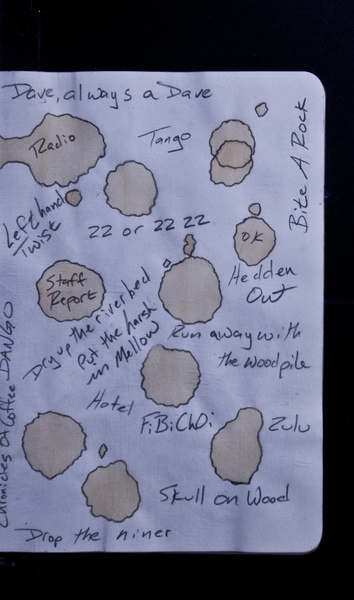 Dave, always a Dave
Radio
Tango
Bite A Rock
Left hand
Twist
22 or 22 22
OK
Hedden
Out
Staff
Report
Dry up the riverbed
Put the harsh
in Mellow
Run away with
the woodpile
Chronicles Of Coffee DANGO
Hotel
FiBiChDi
Zulu
Skull on Wood
Drop the niner